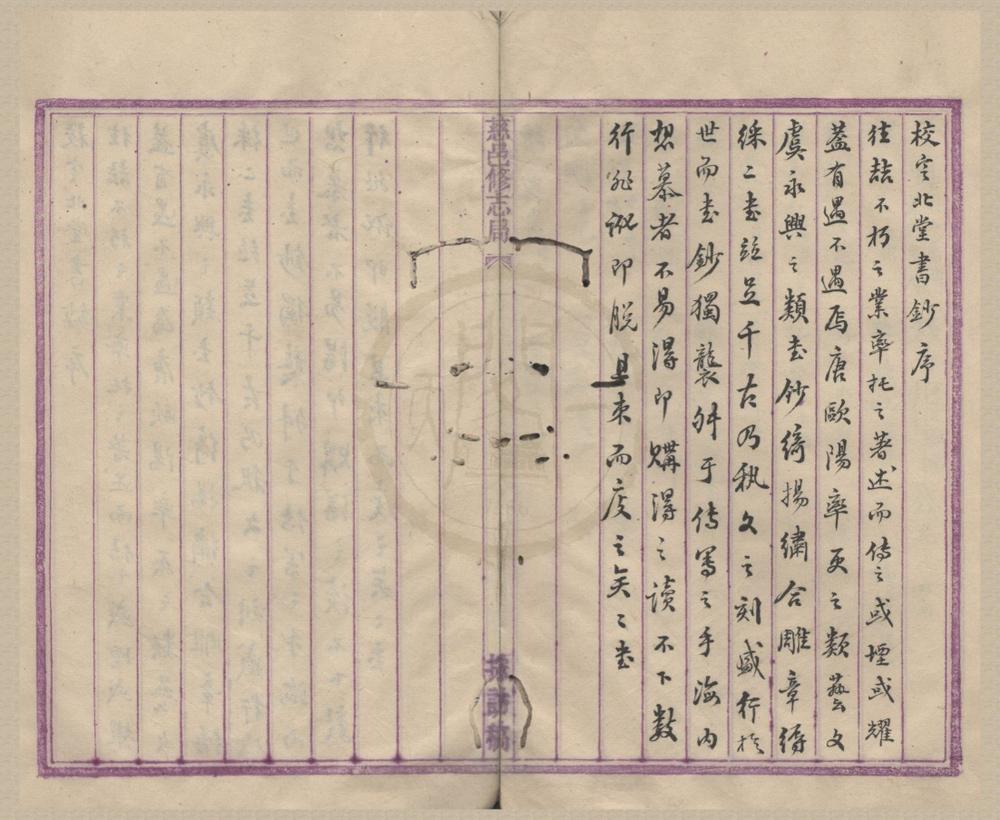 校定北堂書鈔序
往喆不朽之業率托之著述而傳之或堙或耀
蓋有遇不遇焉唐歐陽率更之類藝文
虞永興之類書鈔綺揚繡合雕章縟
綵二書竝足千古乃秇文之刻盛行於
世而書鈔獨襲舛于傳寫之手海內
想慕者不易得即購得之讀不下數
行訛即脫且束而庋之矣之書
慈邑修志局
採訪稿